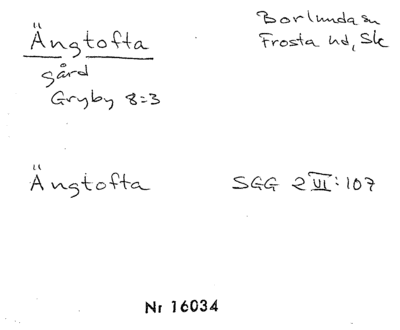 Ängtofta
gård
Gryby 8=3
Borlunda sn
Frosta hd, Sk
Ängtofta
SGG 2 VI:107
Nr 16034